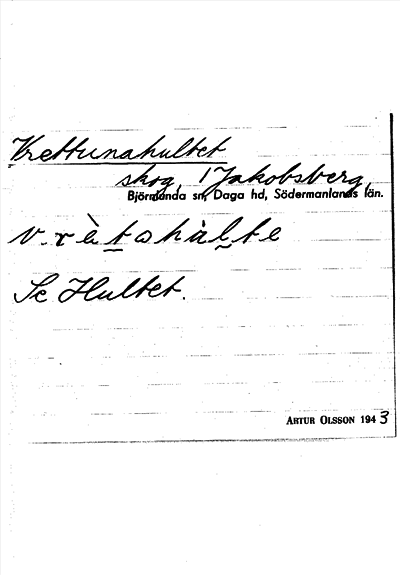 Vrettunahultet
skog, Jakobsberg,
Björnlunda sn, Daga hd, Södermanlands län.
v.rètahùlte
Se Hultet.
ARTUR OLSSON 1943